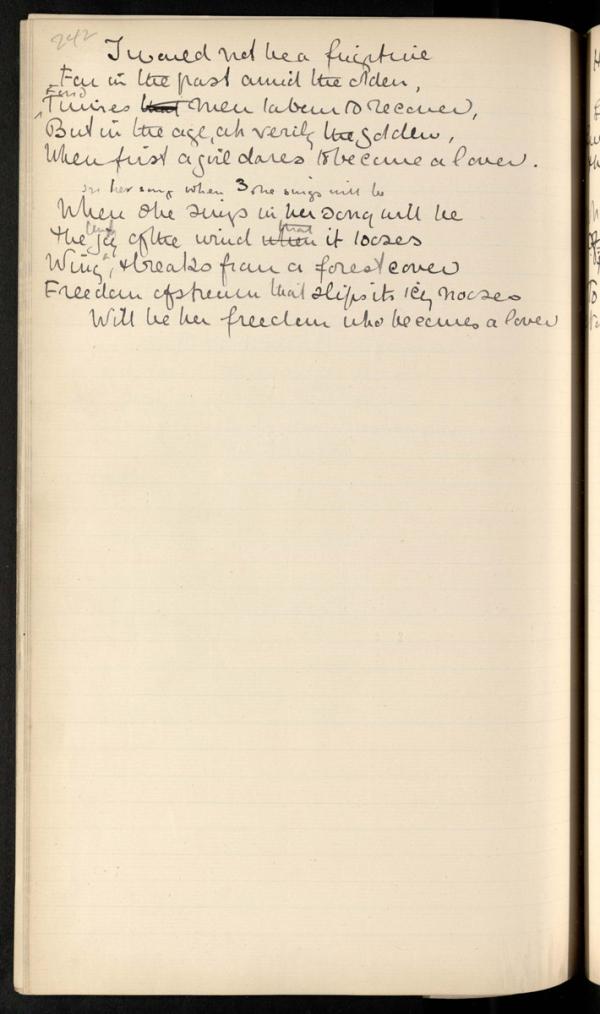 242
I would not be a fugitive
Far in the past amid the olden,
Fond
Times that men labour to recover,
But in the age, ah verily the golden,
When first a girl dares to become a lover.
in her song when she sings will be
When she sings in her song will be
that
the joy of the wind when it looses
Wing, & breaks from a forest cover
Freedom of stream that slips its icy nooses
Will be her freedom who becomes a lover